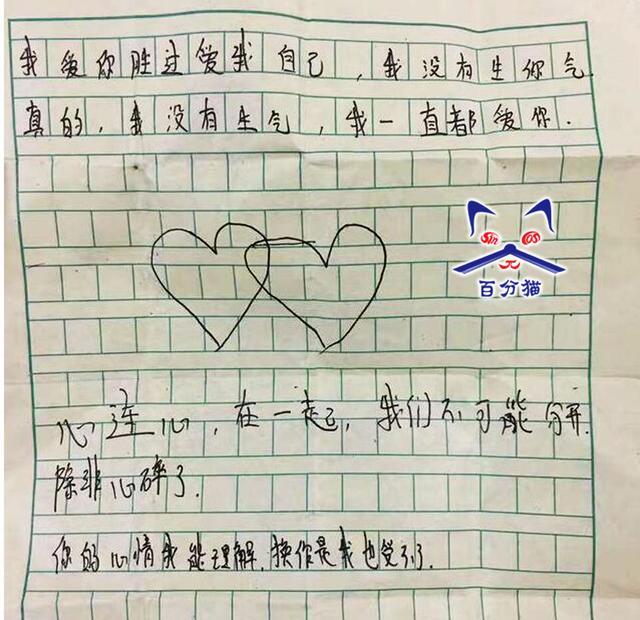 我爱你胜过爱我自己，我没有生你气.
真的，我没有生气，我一直都爱你.
sin cos
元
百分猫
心连心，在一起，我们不可能分开.
除非心碎了.
你的心情我能理解，换作是我也受不了.